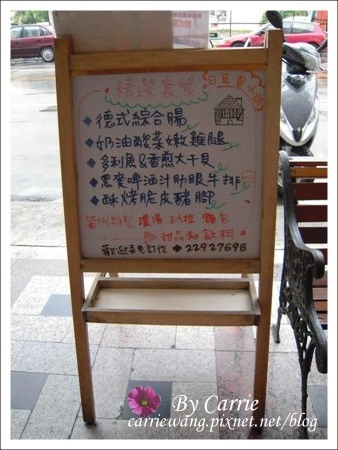 精選套餐
德式綜合腸
奶油酸菜嫩雞腿
多利魚&香煎大干貝
黑麥啤酒汁肋眼牛排
酥烤脆皮豬腳
皆附 濃湯 沙拉 麵包
甜品和飲料
歡迎來電訂位 22927698
By Carrie
carriewang.pixnet.net/blog